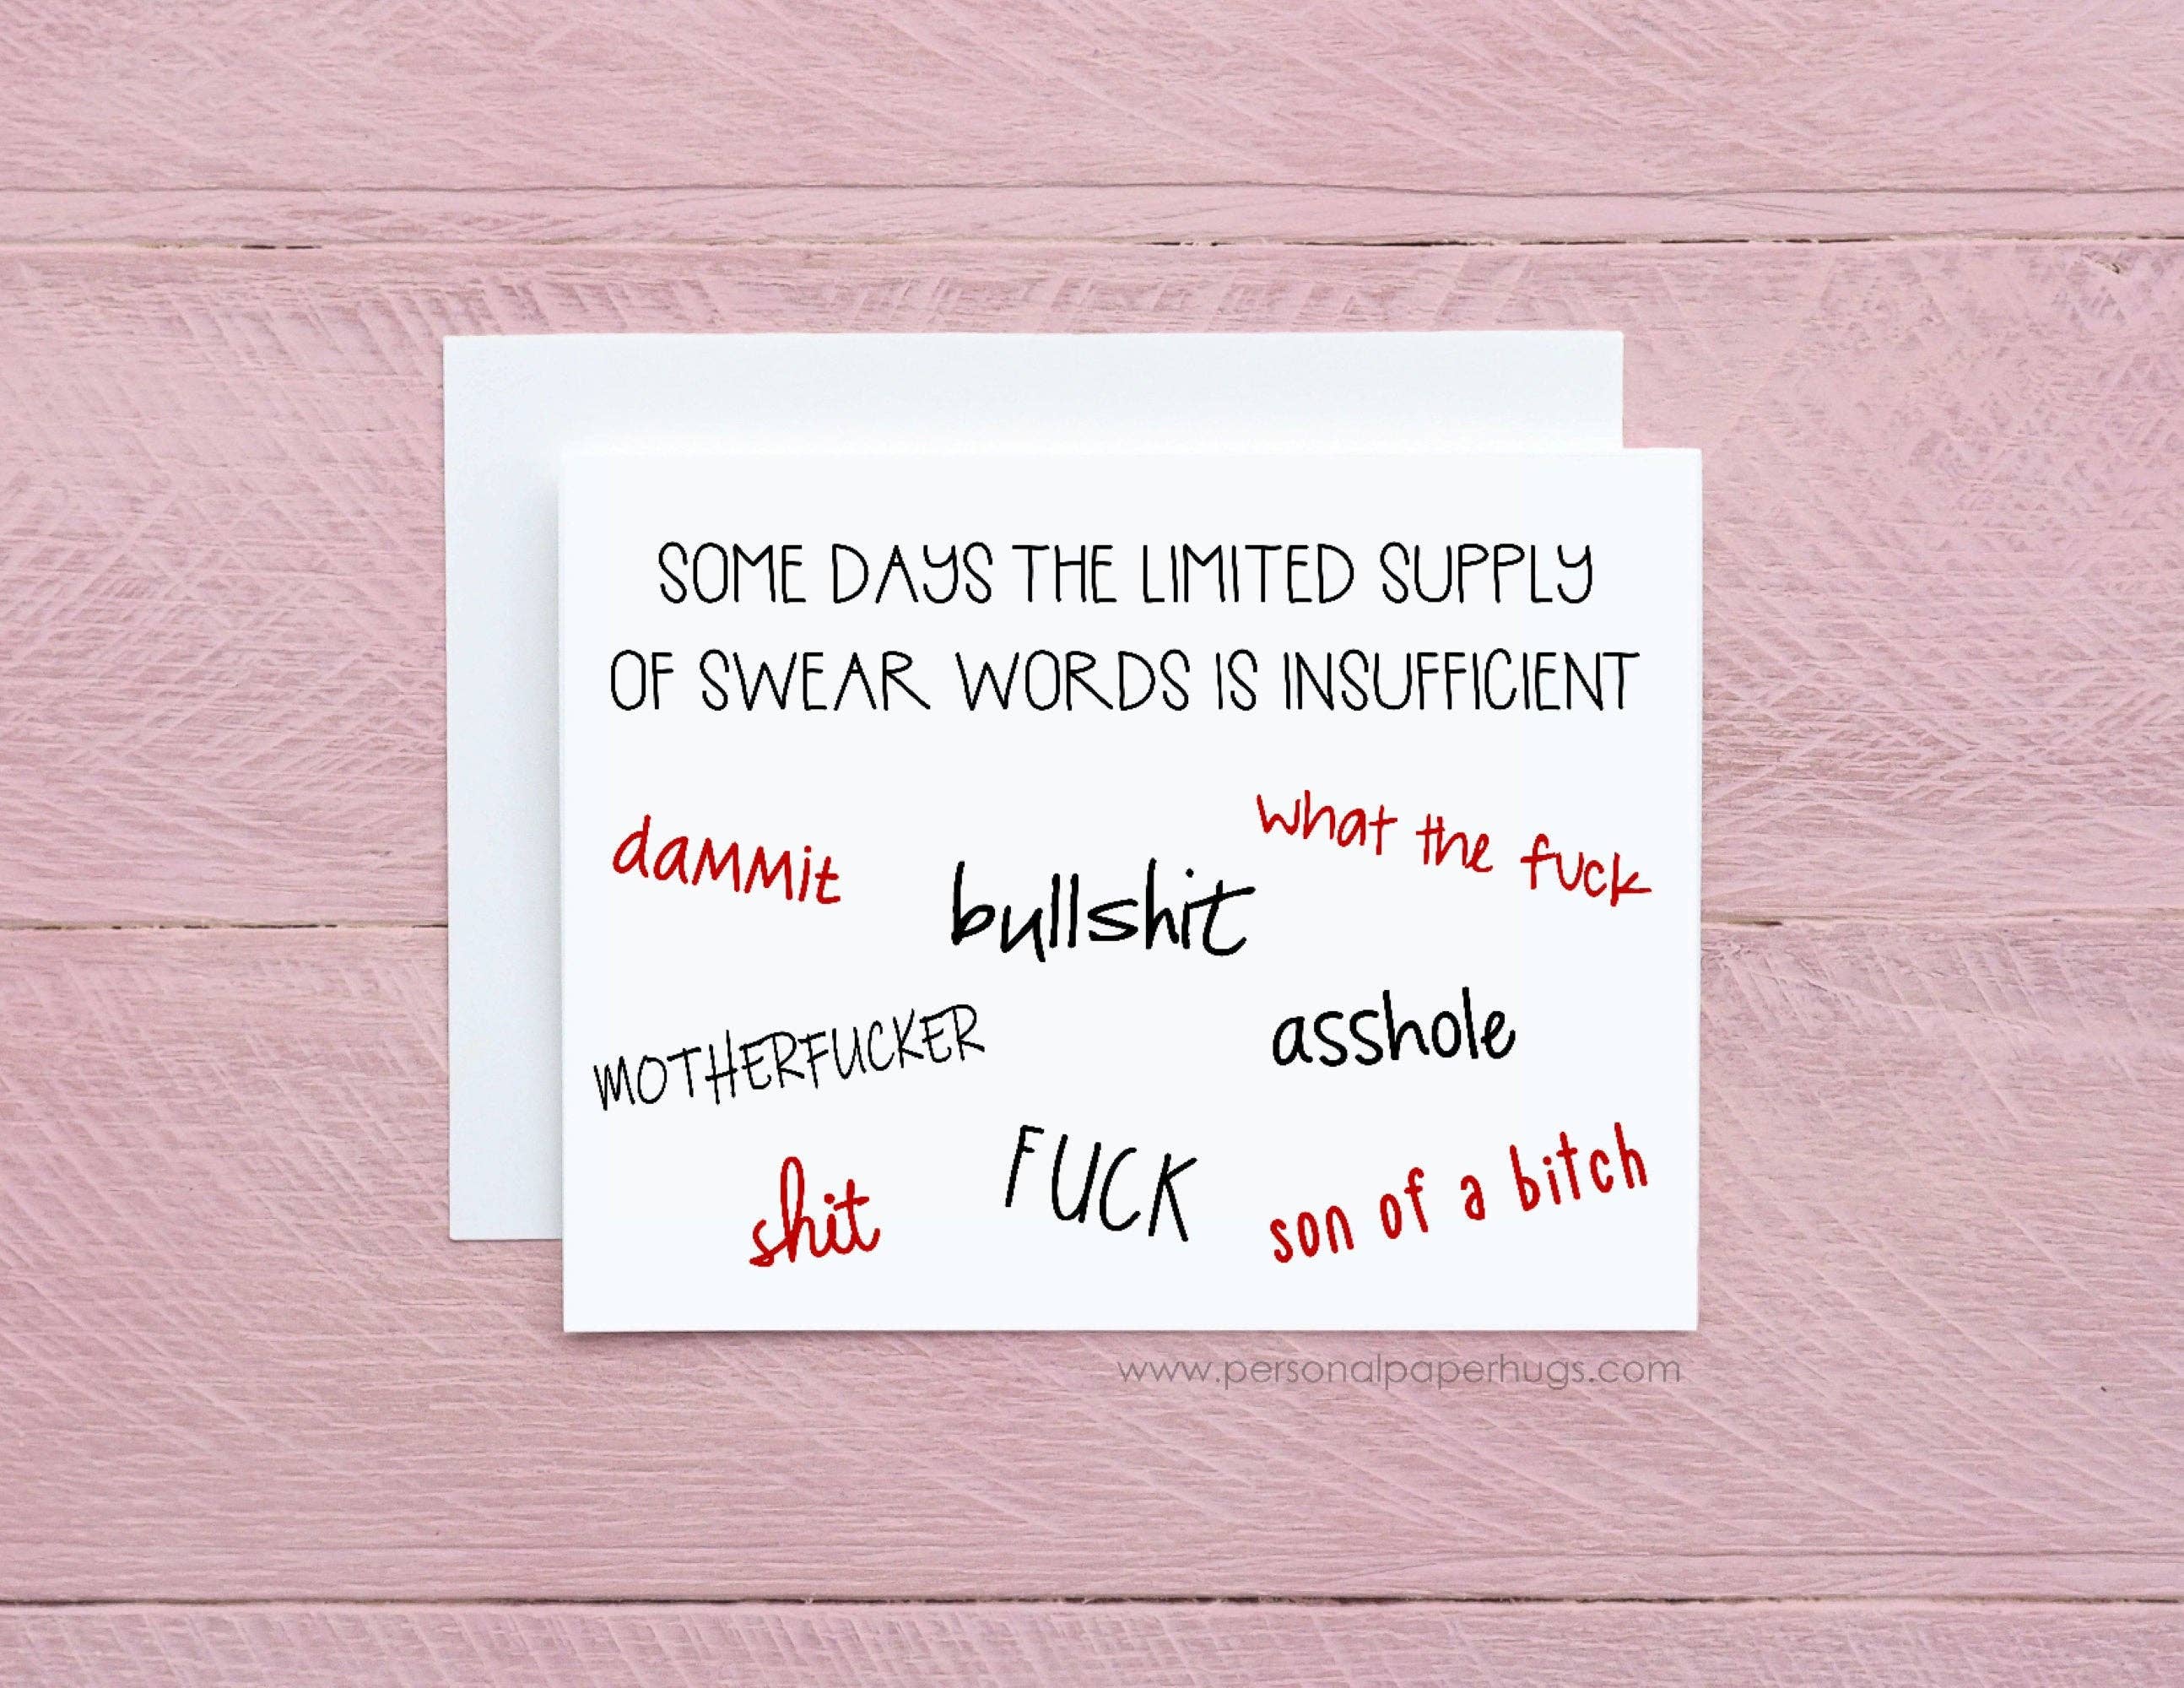 SOME DAYS THE LIMITED SUPPLY
OF SWEAR WORDS IS INSUFFICIENT
dammit
what the fuck
bullshit
MOTHERFUCKER
asshole
shit
FUCK
son of a bitch
www.personalpaperhugs.com